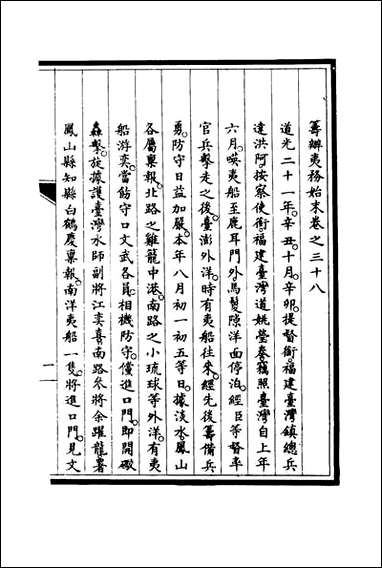 籌辦夷務始末卷之三十八
道光二十一年。辛丑。十月。辛卯。提督銜福建臺灣鎮總兵
達洪阿按察使銜福建臺灣道姚瑩奏。竊照臺灣自上年
六月。𠸄夷船至鹿耳門外馬鬃隙洋面停泊。經臣等督率
官兵擊走之後。臺澎外洋。時有夷船往來。經先後籌備兵
勇。防守日益加嚴。本年八月初一初五等日。據淡水鳳山
各屬稟報。北路之雞籠中港。南路之小琉球等外洋。有夷
船游奕。當飭守口文武各員。相機防守。儻進口門。即開礮
轟擊。旋據護臺灣水師副將江奕喜南路參將余躍龍署
鳳山縣知縣白鶴慶稟報。南洋夷船一隻。將進口門。見文
一